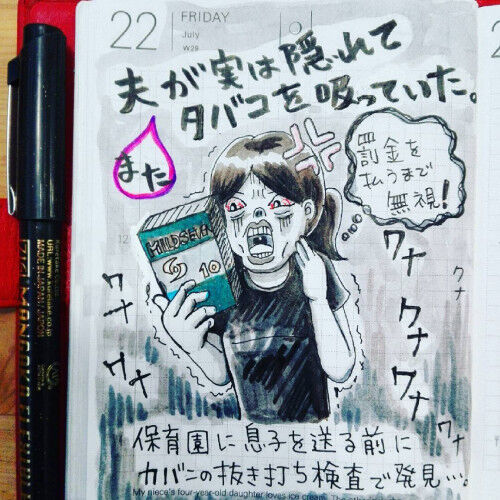 22
FRIDAY
July
W29
夫が実は隠れて
タバコを吸っていた。
また
罰金を
払うまで
無視!
MILD SEVEN
10
12
ワナ
ワナ
ワナ
ワナ
ワナ
ワナ
クナ
保育園に息子を送る前に
カバンの抜き打ち検査で発見…。
My niece's four-year-old daughter loves ice cream.
MADE IN JAPAN